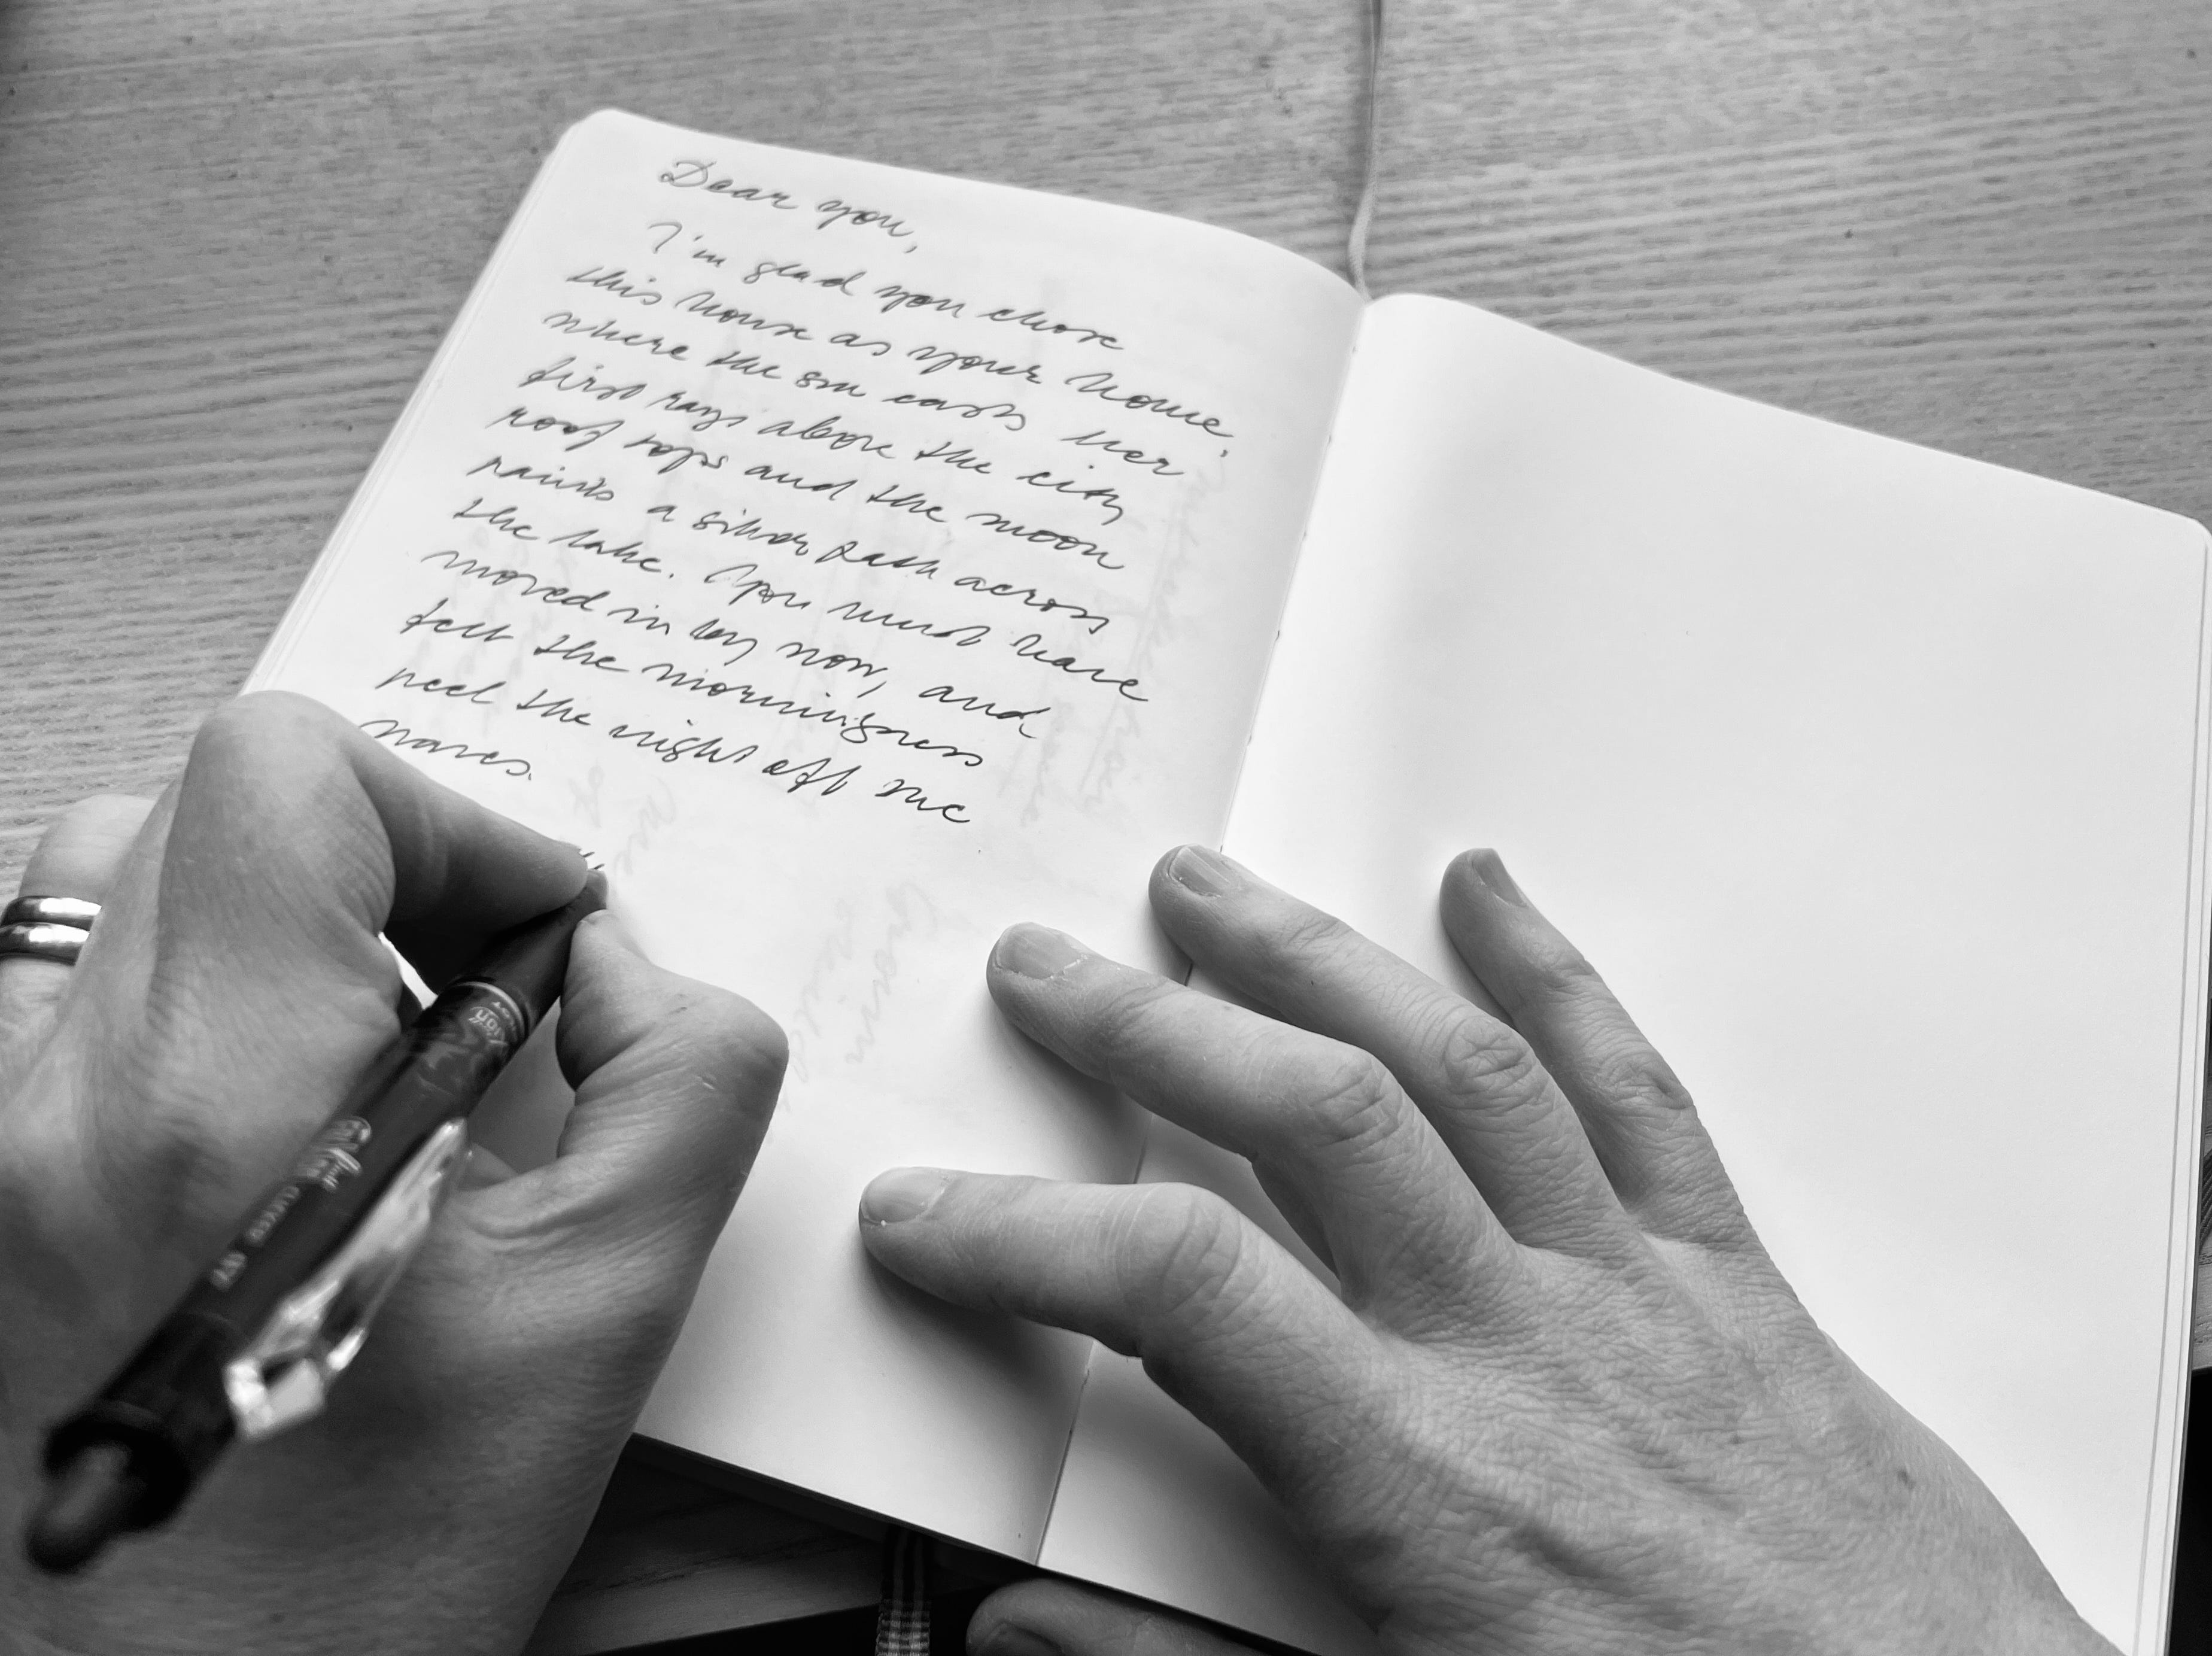 Dear you,
I'm glad you chose
this house as your home,
where the sun casts her
first rays above the city
roof tops and the moon
paints a silver path across
the lake. You must have
moved in by now, and
felt the morningness
peel the night off the
waves.
FriXion
Clicker 0.7